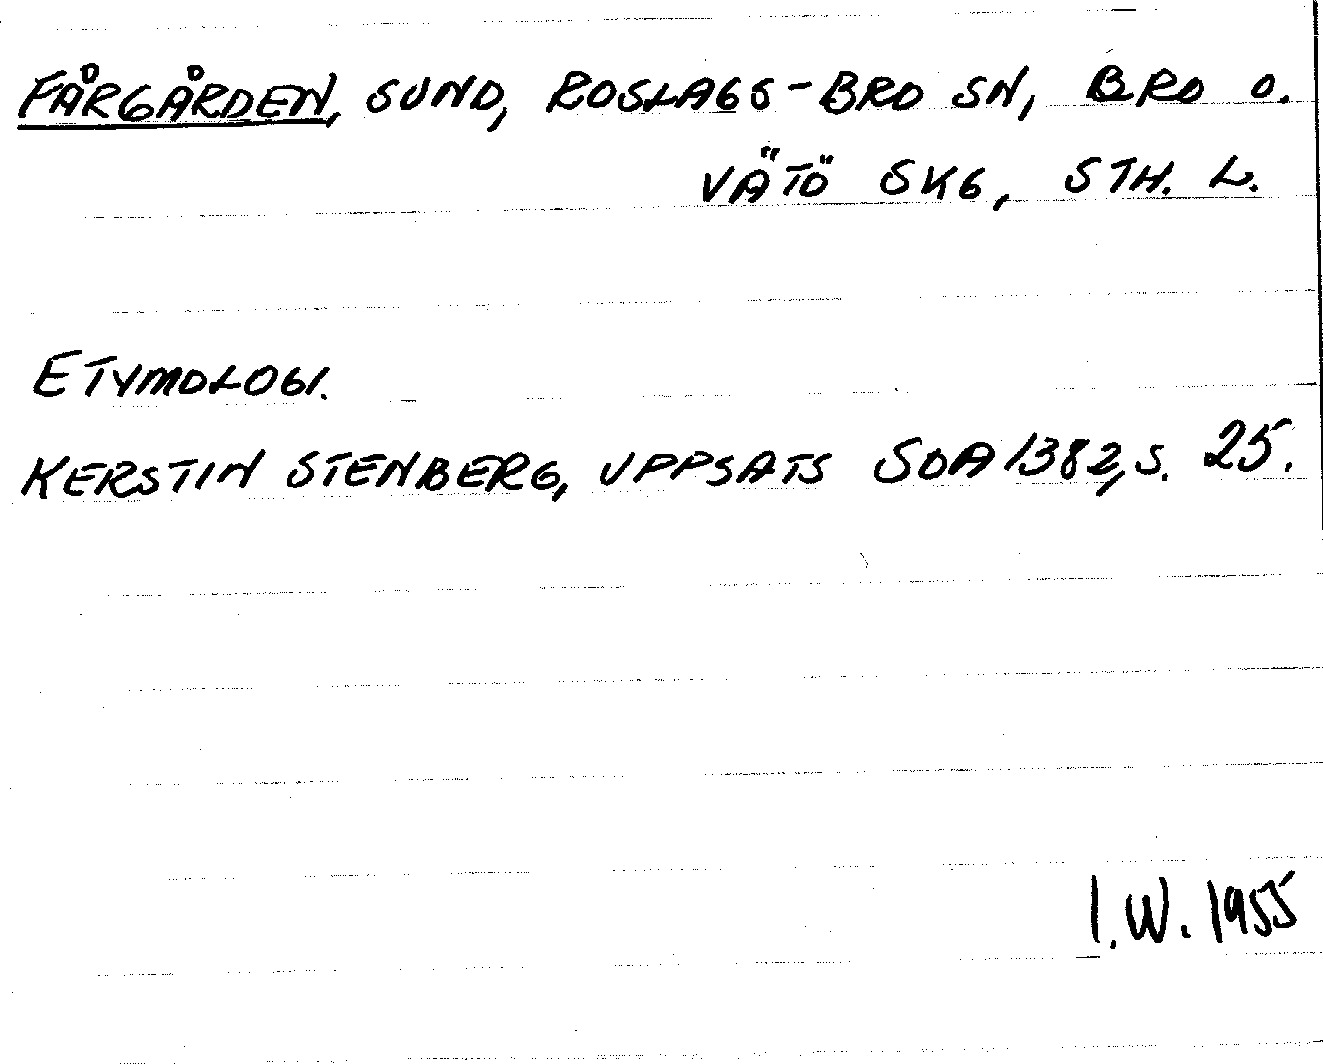 FÅRGÅRDEN, SUND, ROSLAGS-BRO SN, BRO O.
VÄTÖ SKG, STH. L.
ETYMOLOGI.
KERSTIN STENBERG, UPPSATS SOA 1382, S. 25.
I.W. 1955